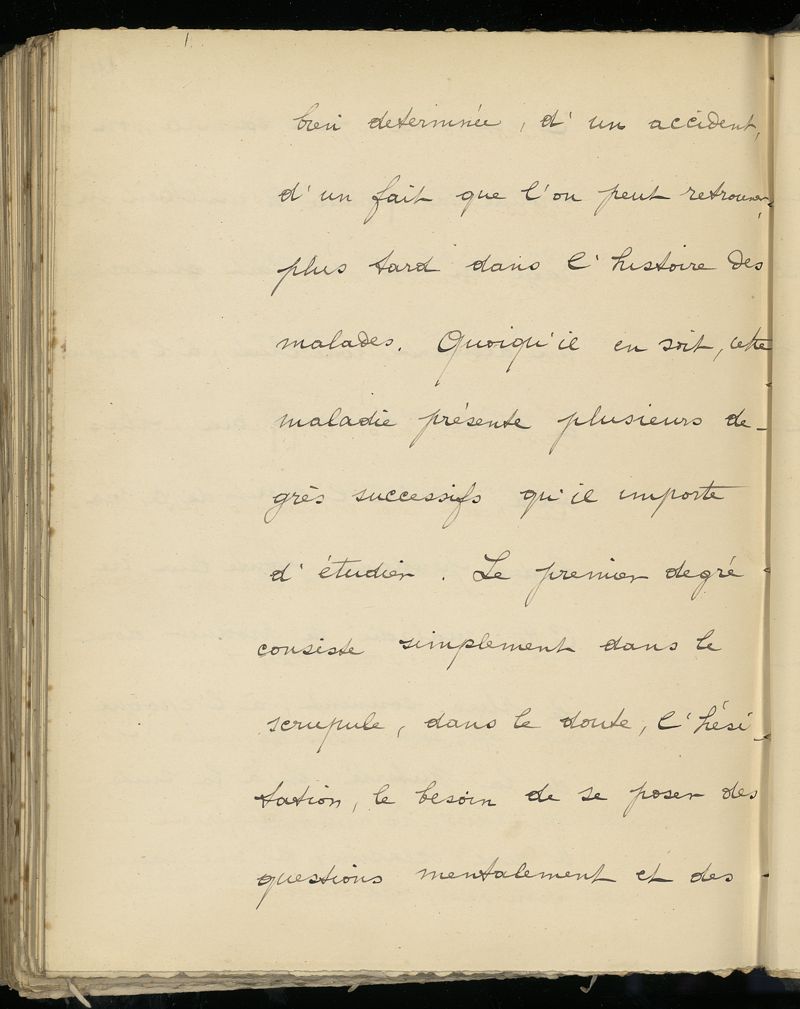 bien determinée, d'un accident,
d'un fait que l'on peut retrouver
plus tard dans l'histoire des
malades. Quoiqu'il en soit, cette
maladie présente plusieurs de-
grès successifs qu'il importe
d'étudier. Le premier degré
consiste simplement dans le
scrupule, dans le doute, l'hési-
tation, le besoin de se poser des
questions mentalement et des